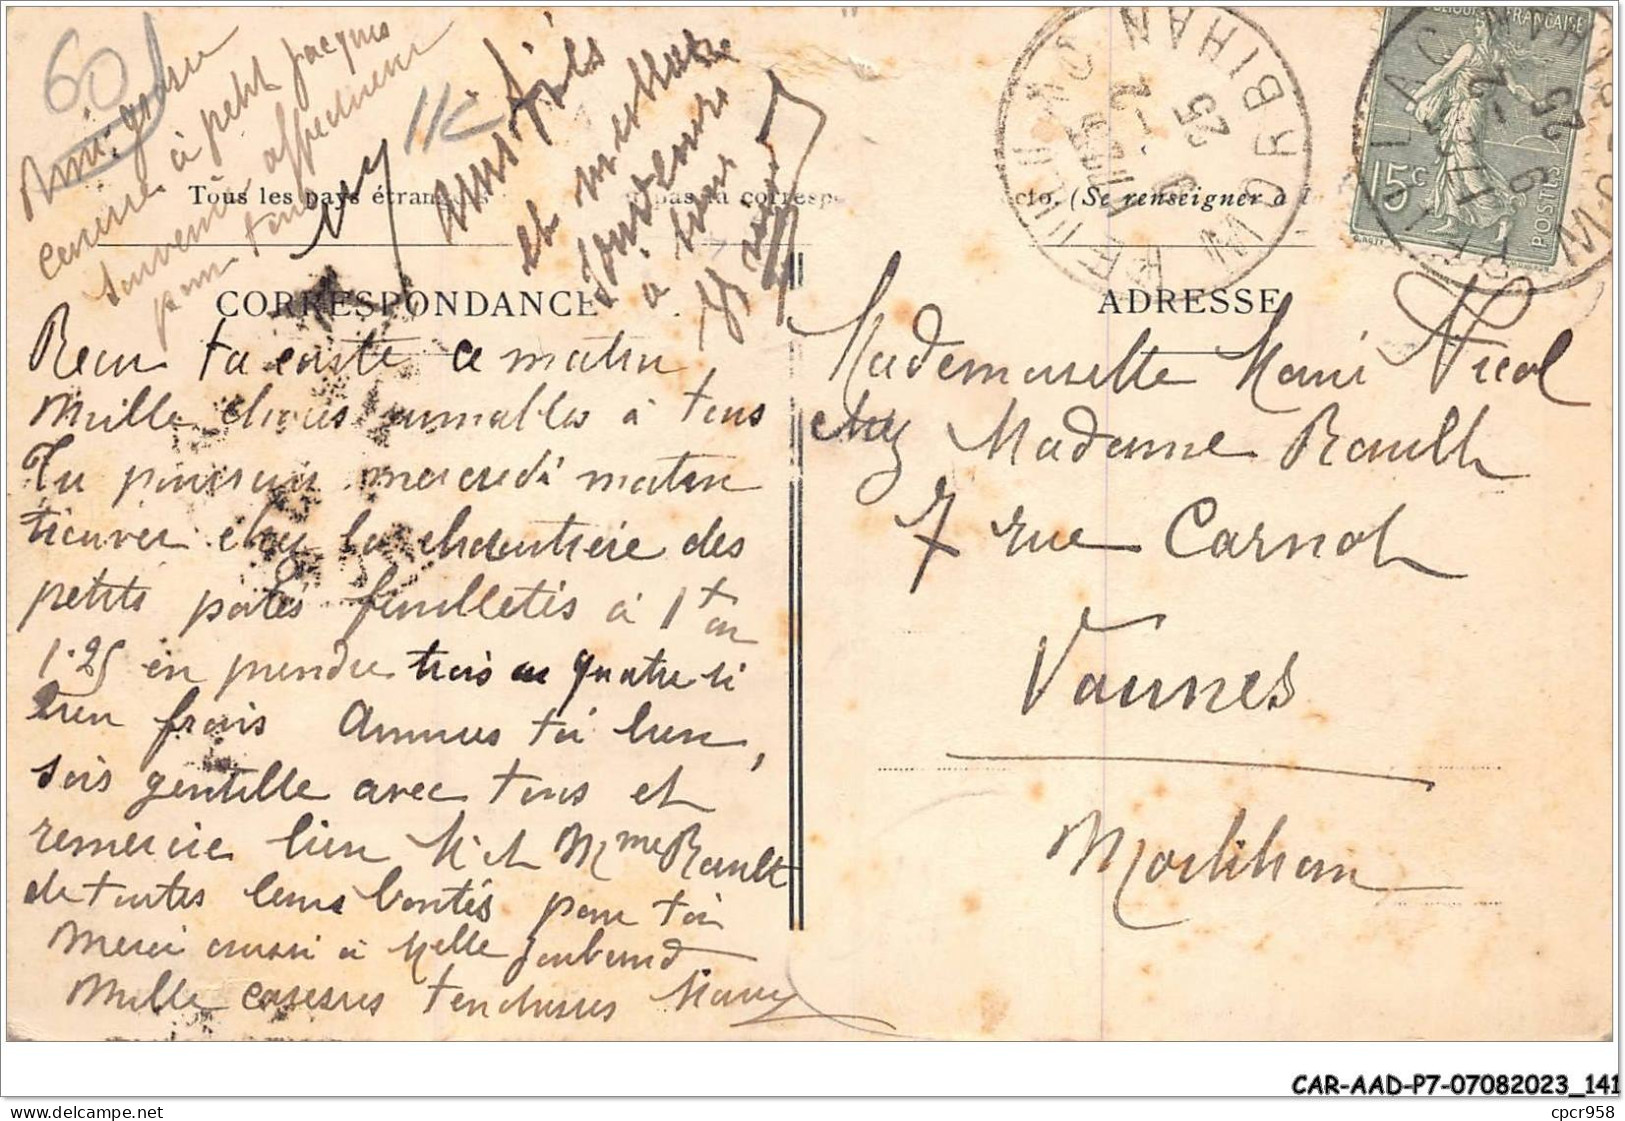 60
11c
Une grosse
caresse à petit Jacques
souvenir affectueux
pour tous
amitiés
et meilleurs
souvenirs
à tous
Tous les pays étrangers pas la corresp cto. (Se renseigner à l
CORRESPONDANCE
Reçu ta carte ce matin
Mille choses aimables à tous
Tu pourrais mercredi matin
trouver chez la charcutière des
petits patés feuilletés à 1f ou
1.25 en prendre trois ou quatre si
bien frais Amuses toi bien,
sois gentille avec tous et
remercie bien Mr et Mme Rault
de toutes leurs bontés pour toi
Merci aussi à Melle
Mille caresses tendresses Mary
ADRESSE
Mademoiselle Marie Nicol
chez Madame Rault
7 rue Carnot
Vannes
Morbihan
MORBIHAN
17 25
2 - 9
25
RÉPUBLIQUE FRANÇAISE
15c
POSTES
17 25
2 - 9
25
CAR-AAD-P7-07082023_141
www.delcampe.net
cpcr958